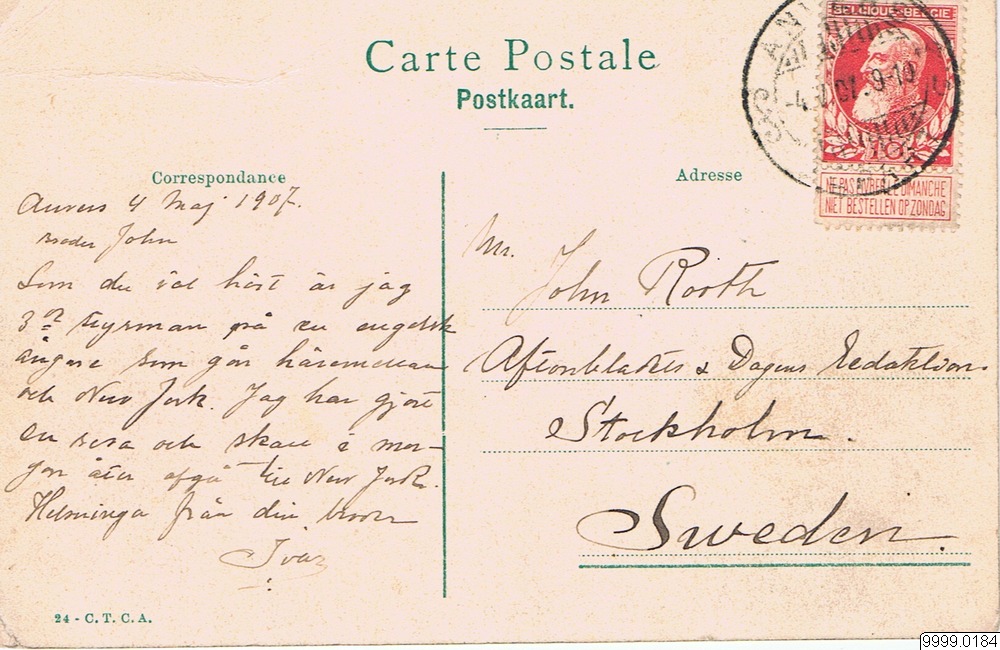 Carte Postale
Postkaart.
BELGIQUE-BELGIE
10
NE PAS LIVRER LE DIMANCHE
NIET BESTELLEN OP ZONDAG
Correspondance
Anvers 4 Maj 1907.
Broder John
Som du väl hört är jag
3dr styrman på en engelsk
ångare som går häremellan
och New York. Jag har gjort
en resa och skall i mor-
gon åter afgå till New York.
Helsninga från din broder
Ivar
Adresse
Mr. John Rooth
Aftonbladets & Dagens Redaktion.
Stockholm.
Sweden.
24 - C. T. C. A.
9999.0184